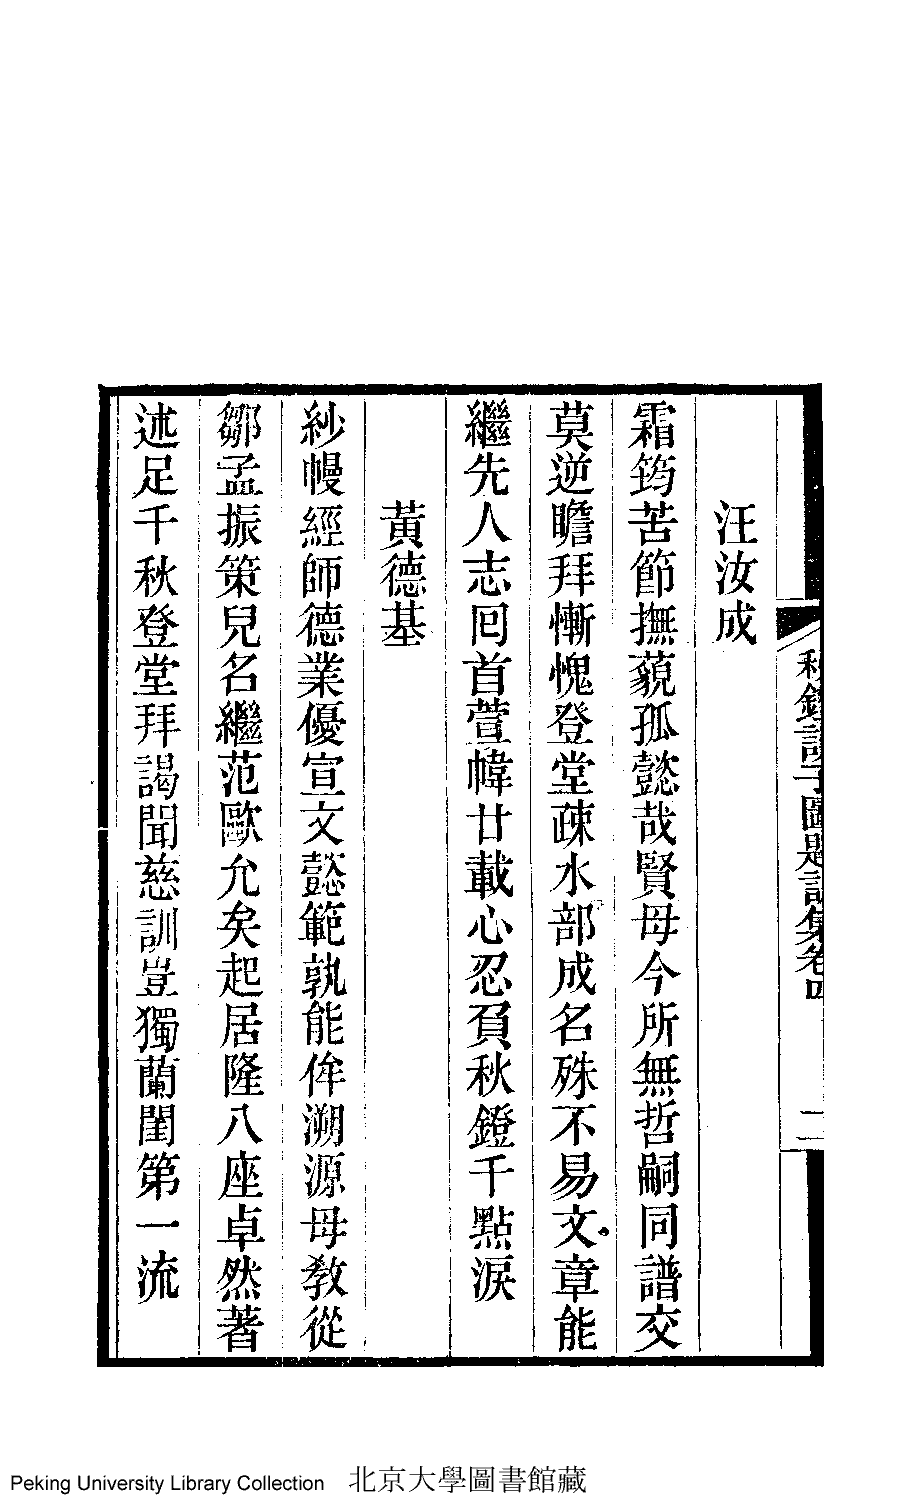 汪汝成
霜筠苦節撫藐孤懿哉賢母今所無哲嗣同譜交
莫逆瞻拜慚愧登堂疎水部成名殊不易文章能
繼先人志回首萱幃廿載心忍負秋鐙千點淚
黃德基
紗幔經師德業優宣文懿範孰能侔溯源母教從
鄒孟振策兒名繼范歐允矣起居隆八座卓然著
述足千秋登堂拜謁聞慈訓豈獨蘭閨第一流
秋鐙課子圖題詞集卷四
二
Peking University Library Collection 北京大學圖書館藏